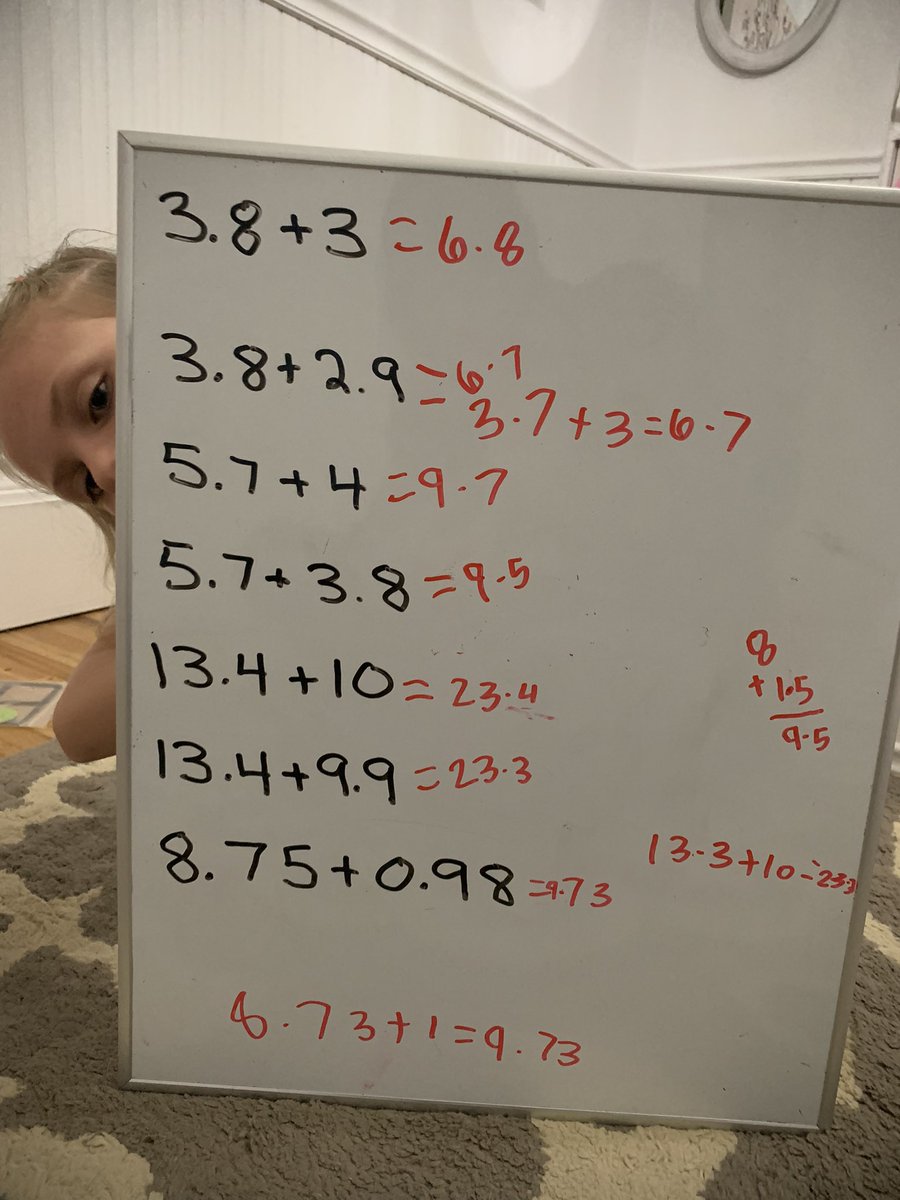 3.8+3 =6.8
3.8+2.9=6.7
=3.7+3=6.7
5.7+4=9.7
5.7+3.8=9.5
8
+1.5
9.5
13.4+10=23.4
13.4+9.9=23.3
13.3+10=23.3
8.75+0.98=9.73
8.73+1=9.73